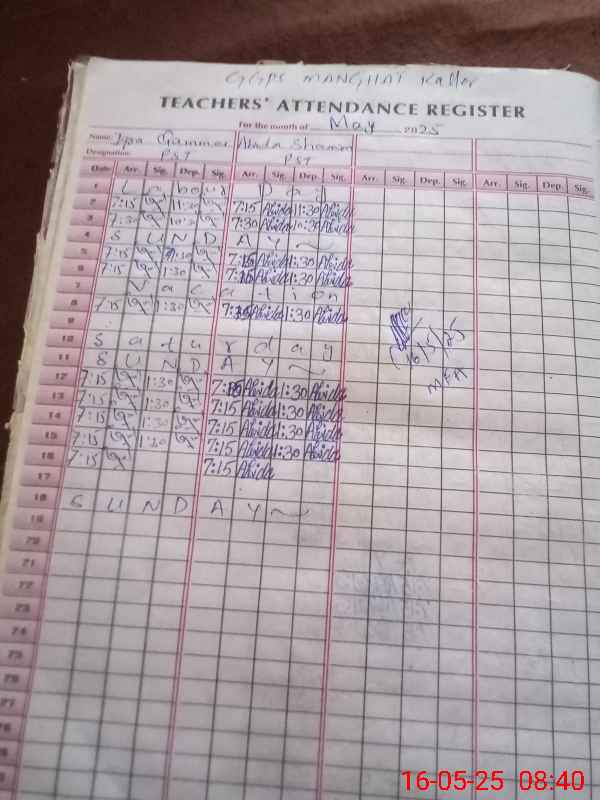 GGPS MANGHAT Kallar
TEACHERS' ATTENDANCE REGISTER
For the month of May 2025
Name: Iqra Abida Shamim
Designation: PST PST
Date Arr. Sig. Dep. Sig. Arr. Sig. Dep. Sig. Arr. Sig. Dep. Sig. Arr. Sig. Dep. Sig.
1 Labour Day
2 7:15 11:30 7:15 Abida 11:30 Abida
3 7:30 10:30 7:30 Abida 10:30 Abida
4 SUNDAY
5 7:15 1:30 7:15 Abida 1:30 Abida
6 7:15 1:30 7:15 Abida 1:30 Abida
7 Vacation
8 7:15 1:30 7:15 Abida 1:30 Abida
9
10 Saturday
11 SUNDAY
12 7:15 1:30 7:15 Abida 1:30 Abida
13 7:15 1:30 7:15 Abida 1:30 Abida
14 7:15 1:30 7:15 Abida 1:30 Abida
15 7:15 1:30 7:15 Abida 1:30 Abida
16 7:15 7:15 Abida
17
18 SUNDAY
19
20
21
22
23
24
25
26
27
16/5/25
MEA
16-05-25 08:40